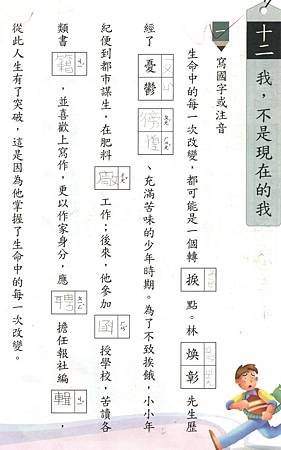 十二 我，不是現在的我
一 寫國字或注音
生命中的每一次改變，都可能是一個轉捩點。林煥彰先生歷
經了憂鬱徬徨、充滿苦味的少年時期。為了不致挨餓，小小年
紀便到都市謀生，在肥料廠工作；後來，他參加函授學校，苦讀各
類書籍，並喜歡上寫作，更以作家身分，應聘擔任報社編輯，
從此人生有了突破，這是因為他掌握了生命中的每一次改變。